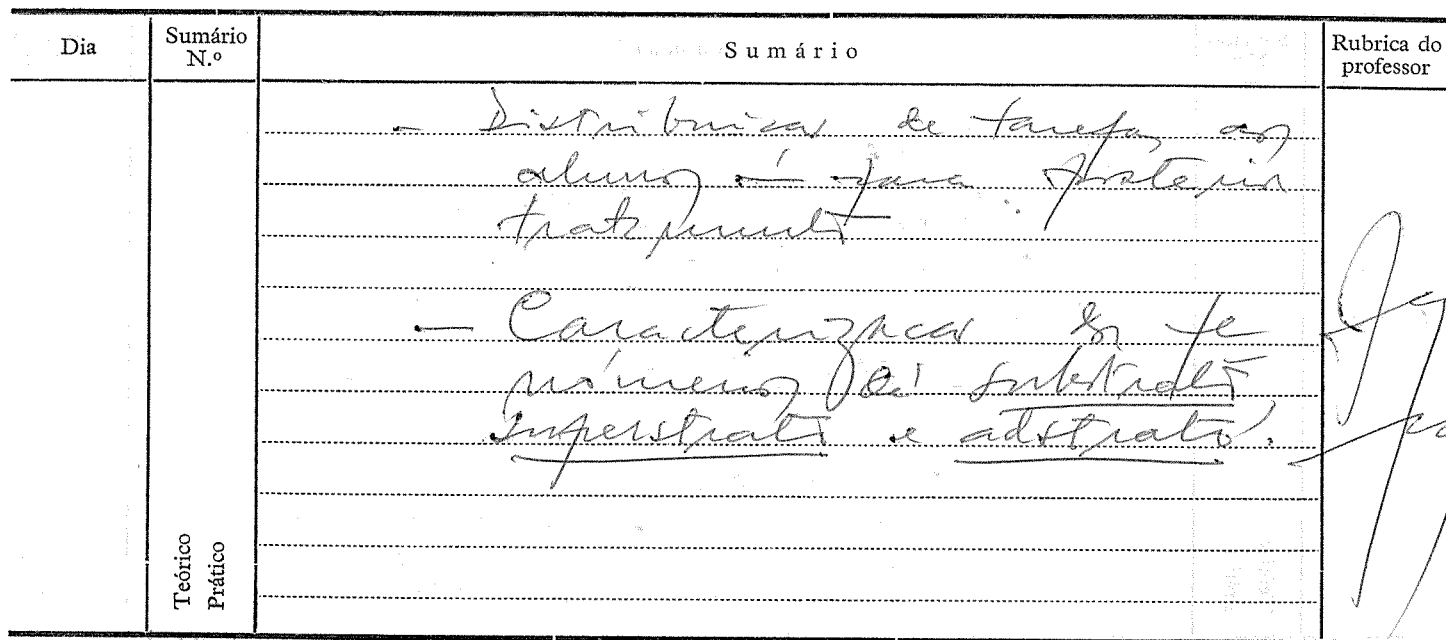 Dia
Sumário N.º
Sumário
Rubrica do professor
- Distribuição de tarefas aos
alunos — para posterior
tratamento
- Caracterização dos fe
nómenos de substrato,
superstrato e adstrato.
Teórico
Prático